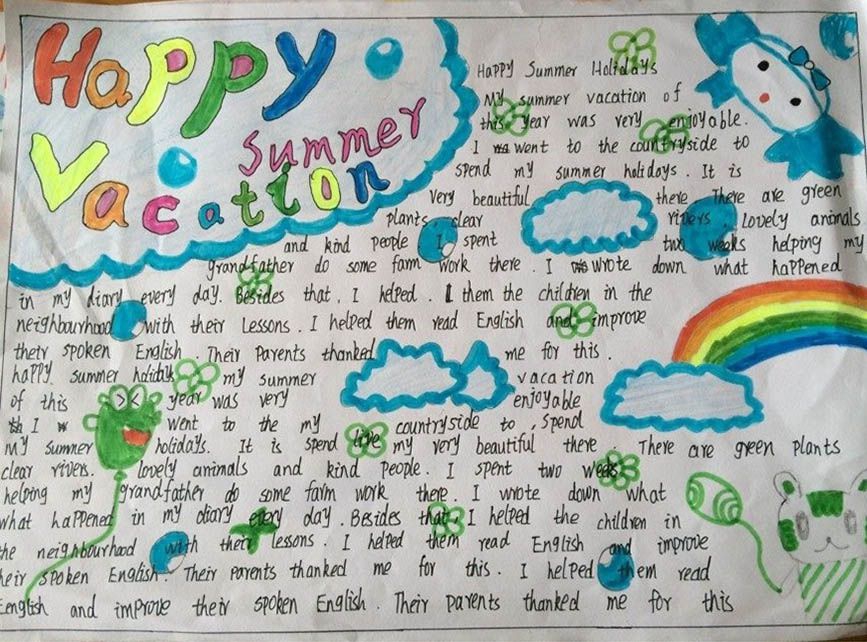 Happy
Summer
Vacation
Happy Summer Holidays
My summer vacation of
this year was very enjoyable.
I went to the countryside to
spend my summer holidays. It is
very beautiful there. There are green
plants, clear rivers, lovely animals
and kind people I spent two weeks helping my
grandfather do some farm work there. I wrote down what happened
in my diary every day. Besides that, I helped. I them the children in the
neighbourhood with their Lessons. I helped them read English and improve
their spoken English. Their Parents thanked me for this.
happy summer holiday my summer vacation
of this year was very enjoyable
I went to the my countryside to, spend
My summer holidays. It is spend live my very beautiful there. There are green plants
clear rivers. lovely animals and kind people. I spent two weeks
helping my grandfather do some farm work there. I wrote down what
what happened in my diary every day. Besides that, I helped the children in
the neighbourhood with their lessons. I helped them read English and improve
heir spoken English. Their Parents thanked me for this. I helped them read
English and improve their spoken English. Their parents thanked me for this